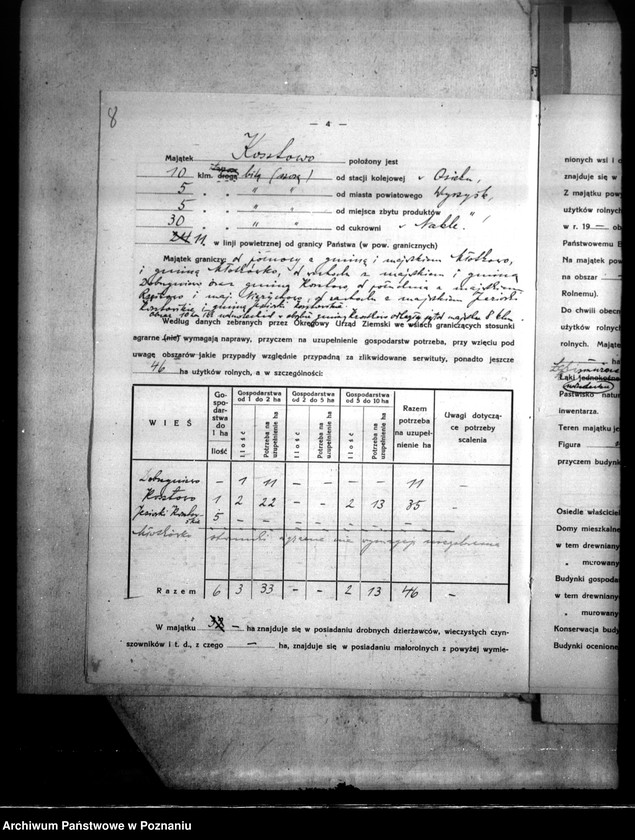 8
— 4 —
Majątek Kosztowo położony jest
10 klm. drogą bitą (szosą) od stacji kolejowej w Osieku,
5 „ „ " " od miasta powiatowego Wyrzysk,
5 „ „ " " od miejsca zbytu produktów
30 „ „ " " od cukrowni w Nakle.
11 w linji powietrznej od granicy Państwa (w pow. granicznych)
Majątek graniczy: od północy z gminą i majątkiem
i gminą z majątkiem i gminą
oraz gminą Kosztowo, od południa z majątkiem
i maj. od zachodu z majątkiem Jeziorki
Kosztowskie i gminą Jeziorki Kosztowskie.
Według danych zebranych przez Okręgowy Urząd Ziemski we wsiach graniczących stosunki
agrarne (nie) wymagają naprawy, przyczem na uzupełnienie gospodarstw potrzeba, przy wzięciu pod
uwagę obszarów jakie przypadły względnie przypadną za zlikwidowane serwituty, ponadto jeszcze
46 ha użytków rolnych, a w szczególności:
WIEŚ
Gospodarstwa do 1 ha
Ilość
Gospodarstwa od 1 do 2 ha
Ilość
Potrzeba na uzupełnienie ha
Gospodarstwa od 2 do 5 ha
Ilość
Potrzeba na uzupełnienie ha
Gospodarstwa od 5 do 10 ha
Ilość
Potrzeba na uzupełnienie ha
Razem potrzeba na uzupełnienie ha
Uwagi dotyczące potrzeby scalenia
– 1 11 – – – – 11 –
Kosztowo 1 2 22 – – 2 13 35 –
Jeziorki Kosztowskie 5 – – – – – – – –
stosunki agrarne nie wymagają uzupełnienia
Razem 6 3 33 – – 2 13 46 –
W majątku — ha znajduje się w posiadaniu drobnych dzierżawców, wieczystych czyn-
szowników i t. d., z czego — ha, znajduje się w posiadaniu małorolnych z powyżej wymie-
nionych wsi i o
znajduje się w
Z majątku pow
użytków rolnych
w r. 19 — ob
Państwowemu B
Na majątek pow
na obszar
Rolnemu).
Do chwili obecn
użytków rolnych
rolnych. Mająte
ha
Łąki jednokośne
Pastwisko natur
inwentarza.
Teren majątku je
Figura
przyczem budynk
Osiedle właściciel
Domy mieszkalne
w tem drewniany
„ murowany
Budynki gospodar
w tem drewniany
„ murowany
Konserwacja budy
Budynki ocenione
Archiwum Państwowe w Poznaniu